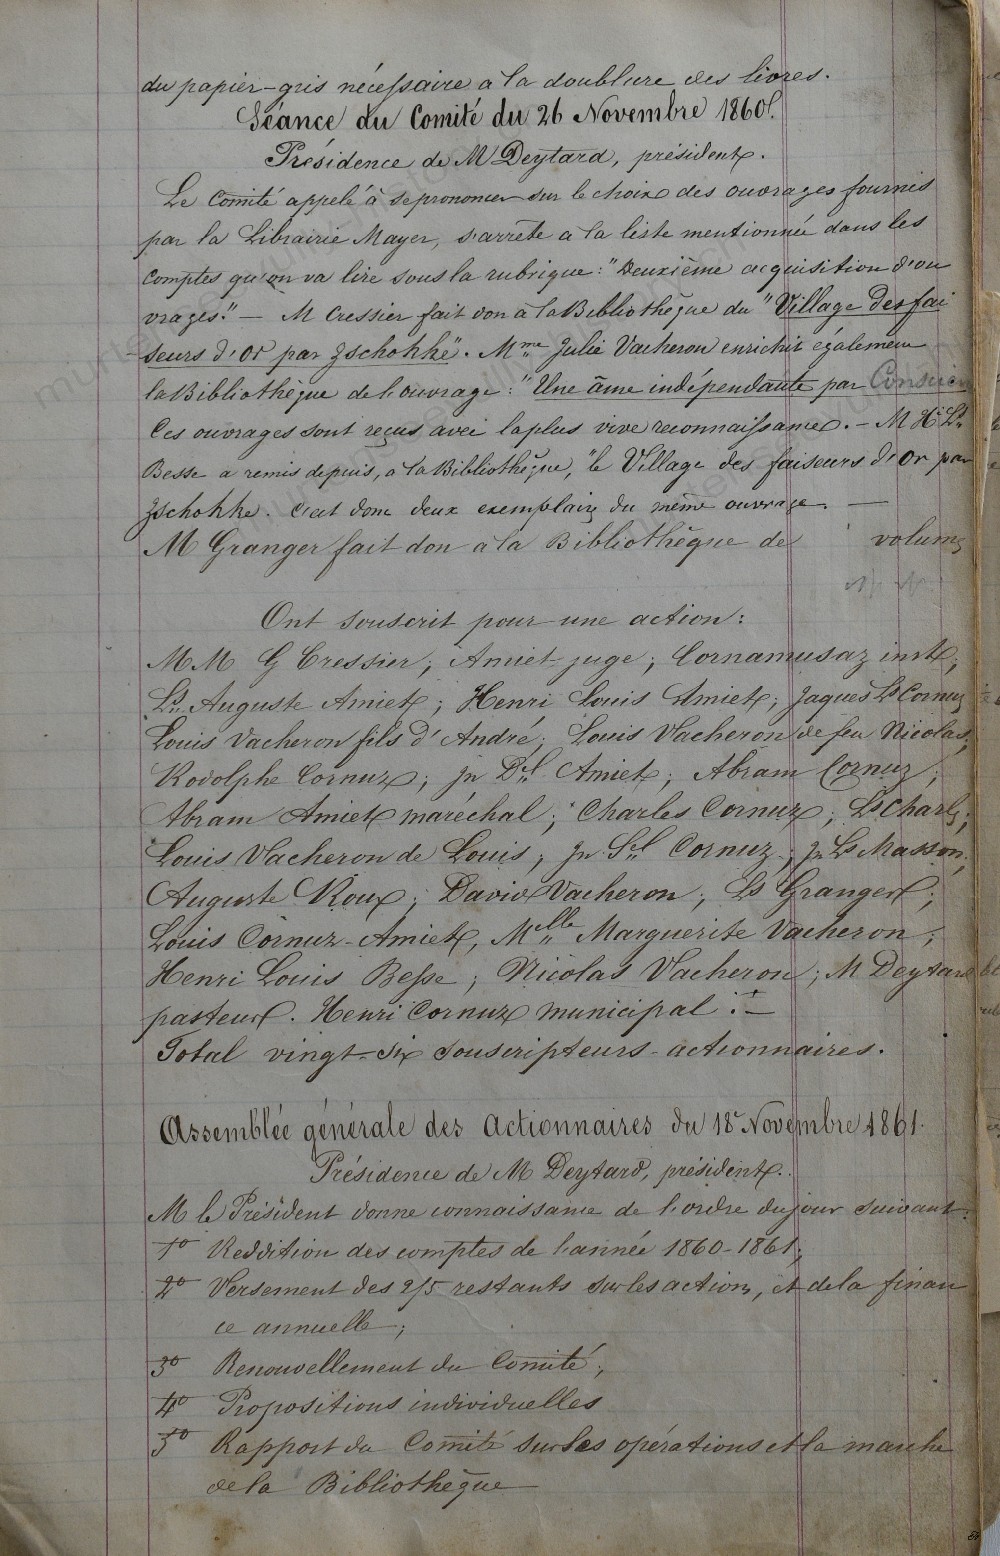 du papier-gris nécessaire a la doublure des livres.
Séance du Comité du 26 Novembre 1860.
Présidence de M Deytard, président.
Le Comité appelé à se prononcer sur le choix des ouvrages fournis
par la Librairie Mayer, s'arrête a la liste mentionnée dans les
comptes qu'on va lire sous la rubrique: "Deuxième acquisition d'ou
vrages." — M Cressier fait don à la Bibliothèque du "Village des fai
-seurs d'Or par Zschohke". Mme Julie Vacheron enrichit également
la Bibliothèque de l'ouvrage: "Une âme indépendante par
Ces ouvrages sont reçus avec la plus vive reconnaissance. — M Hi Ls
Besse a remis depuis, a la Bibliothèque, "le Village des faiseurs d'Or par
Zschohke. C'est donc deux exemplaires du même ouvrage. —
M Granger fait don a la Bibliothèque de volumes
Ont souscrit pour une action:
MM G Cressier; Amiet juge; Cornamusaz inst;
Ls Auguste Amiet; Henri Louis Amiet; Jaques Ls Cornuz
Louis Vacheron fils d'André; Louis Vacheron de feu Nicolas;
Rodolphe Cornuz; Jn Dl Amiet; Abram Cornuz;
Abram Amiet maréchal; Charles Cornuz; Ls Charles;
Louis Vacheron de Louis; Jn Sl Cornuz; Jn Ls Masson;
Auguste Roux; David Vacheron; Ls Granger;
Louis Cornuz-Amiet, Mlle Marguerite Vacheron;
Henri Louis Besse; Nicolas Vacheron; M Deytard
pasteur. Henri Cornuz municipal. —
Total vingt-six souscripteurs-actionnaires.
Assemblée générale des Actionnaires du 18 Novembre 1861.
Présidence de M Deytard, président.
M le Président donne connaissance de l'ordre du jour suivant:
1o Reddition des comptes de l'année 1860-1861;
2o Versement des 2/5 restants sur les actions, et de la finan
ce annuelle;
3o Renouvellement du Comité;
4o Propositions individuelles
5o Rapport du Comité sur les opérations et la marche
de la Bibliothèque